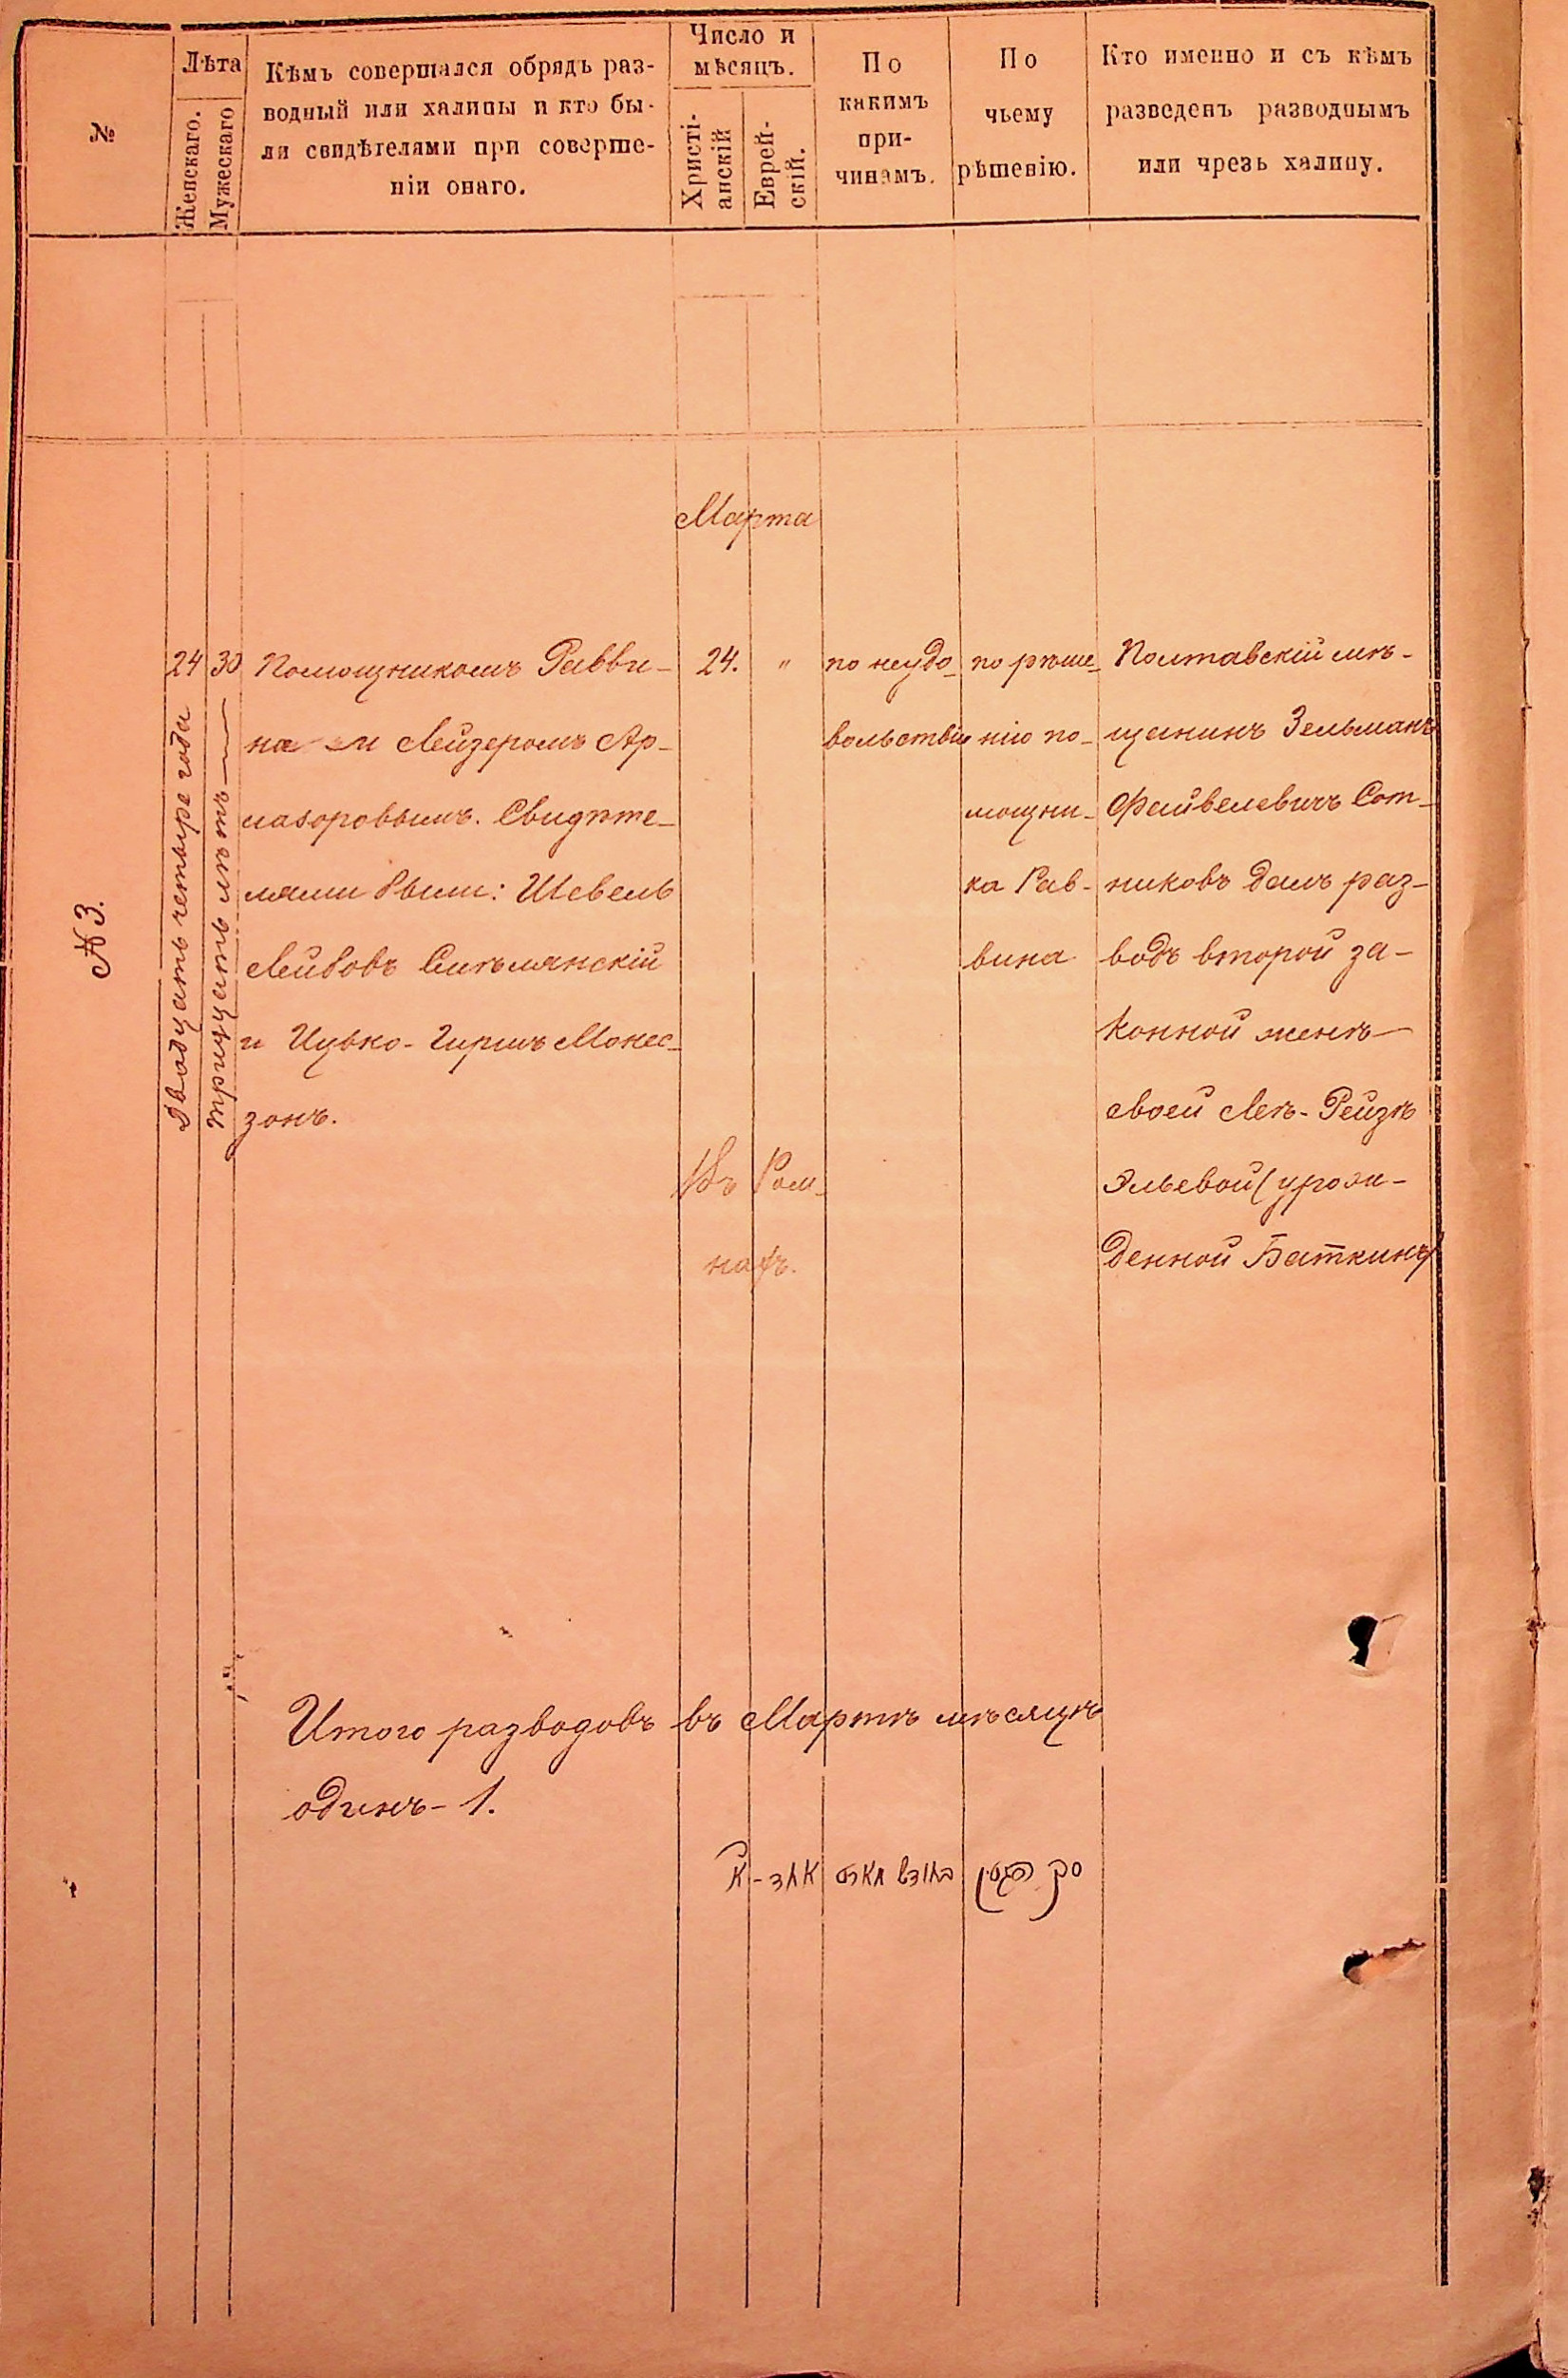 №
Лѣта
Женскаго.
Мужескаго
Кѣмъ совершался обрядъ раз-
водный или халицы и кто бы-
ли свидѣтелями при соверше-
ніи онаго.
Число и
мѣсяцъ.
Христі-
анскій
Еврей-
скій.
По
какимъ
при-
чинамъ.
По
чьему
рѣшенію.
Кто именно и съ кѣмъ
разведенъ разводнымъ
или чрезъ халицу.
Марта
№ 3.
24
Двадцать четыре года
30
тридцать лѣтъ
Помощникомъ Равви-
на Лейзеромъ Ар-
лазоровымъ. Свидѣте-
лями были: Шевель
Лейбовъ Смѣлянскій
и Ицько-Гиршъ Монес-
зонъ.
24.
"
Въ Ром-
нахъ.
по неудо-
вольствію
по рѣше-
нію по-
мощни-
ка Рав-
вина
Полтавскій мѣ-
щанинъ Зельманъ
Файвелевичъ Сот-
никовъ далъ раз-
водъ второй за-
конной женѣ
своей Леѣ-Рейзѣ
Эльевой (урож-
денной Баткинъ)
Итого разводовъ въ Мартѣ мѣсяцѣ
одинъ - 1.
סך הגטין בחודש מארט אחד - א